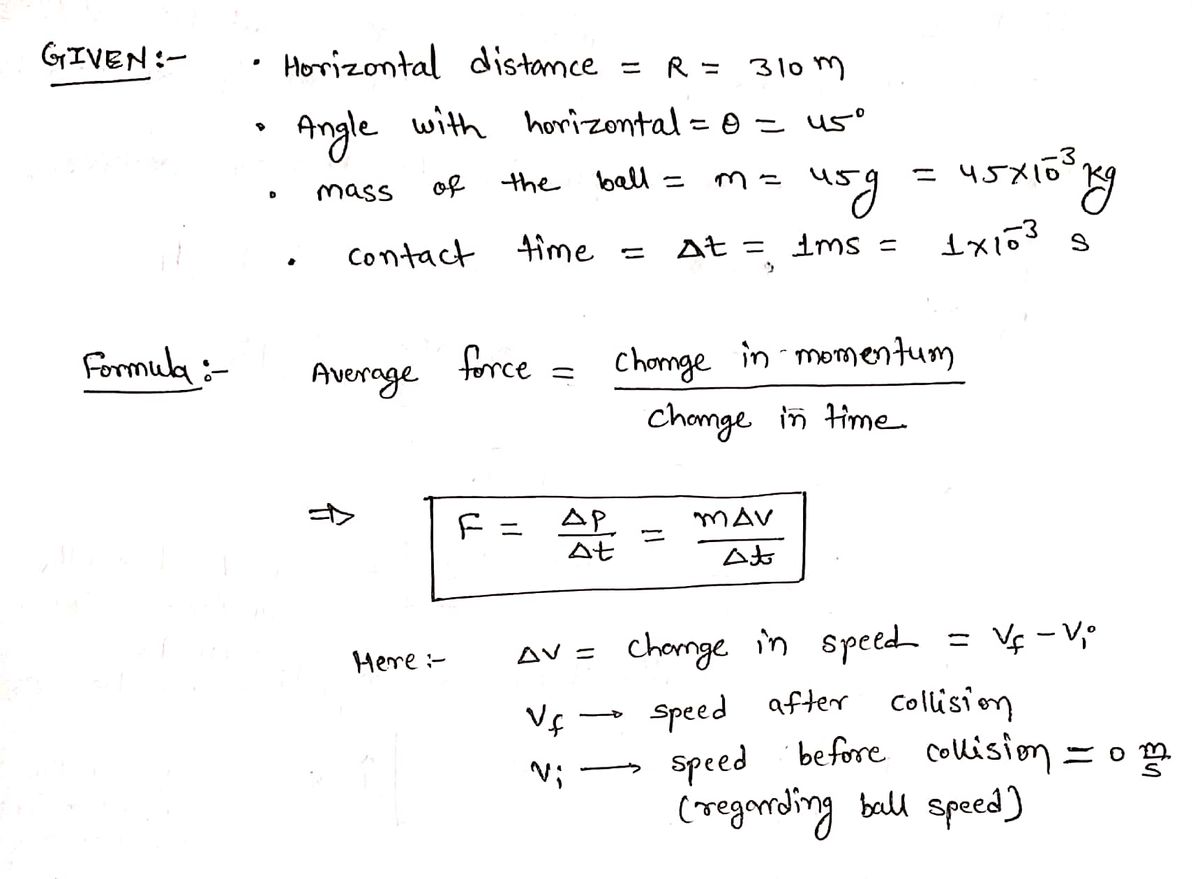 GIVEN:- • Horizontal distance = R = 310 m
• Angle with horizontal = θ = 45°
• mass of the ball = m = 45g = 45×10⁻³ kg
• contact time = Δt = 1ms = 1×10⁻³ s
Formula:- Average force = change in momentum
change in time
⇒ F = ΔP/Δt = mΔV/Δt
Here:- ΔV = change in speed = Vf - Vi
Vf → speed after collision
Vi → speed before collision = 0 m/s
(regarding ball speed)